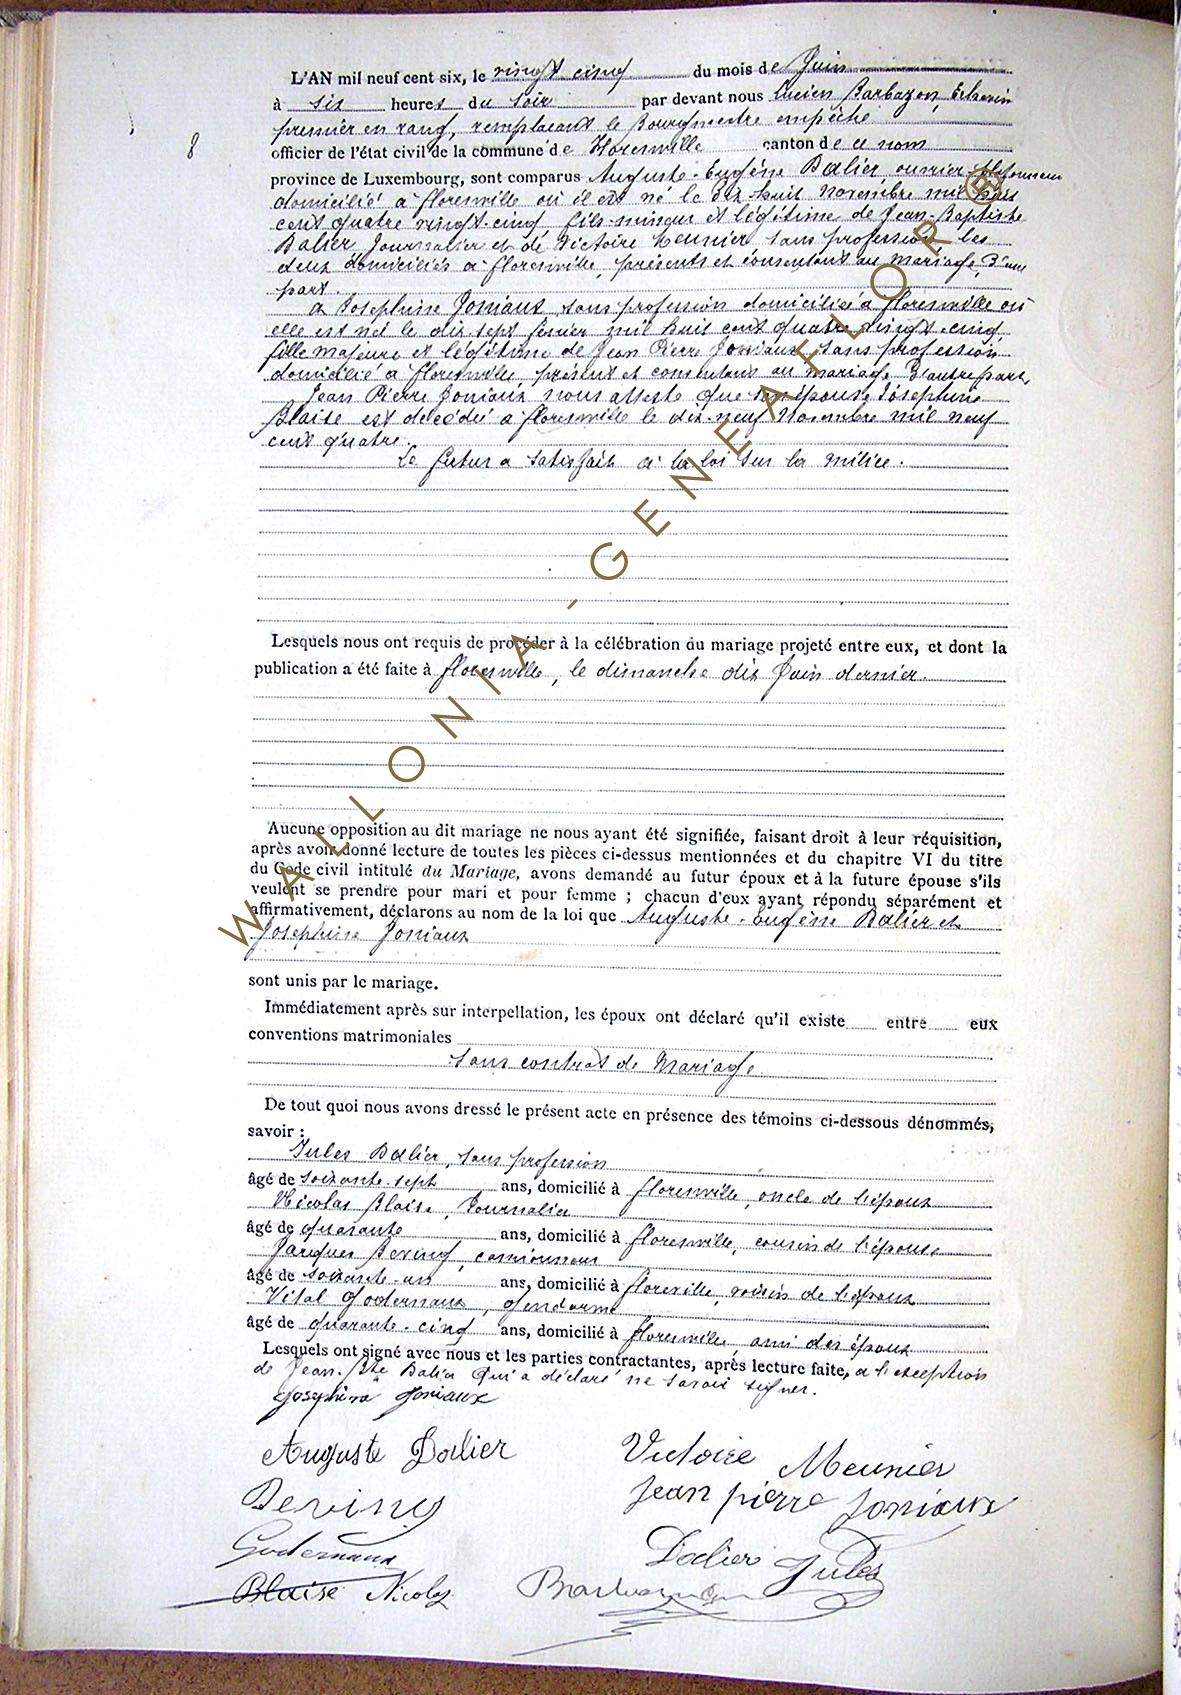 L'AN mil neuf cent six, le vingt cinq du mois de Juin
à six heures du soir par devant nous Lucien Barbazon, Echevin
premier en rang, remplaçant le Bourgmestre empêché
8
officier de l'état civil de la commune de Florenville canton de ce nom
province de Luxembourg, sont comparus Auguste-Eugène Dalier, ouvrier
domicilié à florenville où il est né le dix huit novembre mil huit
cent quatre vingt-cinq fils mineur et légitime de Jean-Baptiste
Dalier Journalier et de Victoire Meunier, sans profession, les
deux domiciliés à florenville, présents et consentant au mariage, d'une
part.
a Josephine Joniaux, sans profession domiciliée à florenville où
elle est née le dix sept février mil huit cent quatre vingt-cinq
fille majeure et légitime de Jean Pierre Joniaux, sans profession
domicilié à florenville présent et consentant au mariage d'autre part,
Jean Pierre Joniaux nous atteste que son épouse Josephine
Blaise est décédée à florenville le dix-neuf Novembre mil neuf
cent quatre.
Le futur a satisfait à la loi sur la milice.
Lesquels nous ont requis de procéder à la célébration du mariage projeté entre eux, et dont la
publication a été faite à florenville, le dimanche dix Juin dernier.
Aucune opposition au dit mariage ne nous ayant été signifiée, faisant droit à leur réquisition,
après avoir donné lecture de toutes les pièces ci-dessus mentionnées et du chapitre VI du titre
du Code civil intitulé du Mariage, avons demandé au futur époux et à la future épouse s'ils
veulent se prendre pour mari et pour femme ; chacun d'eux ayant répondu séparément et
affirmativement, déclarons au nom de la loi que Auguste-Eugène Dalier et
Josephine Joniaux
sont unis par le mariage.
Immédiatement après sur interpellation, les époux ont déclaré qu'il existe entre eux
conventions matrimoniales
sans contrat de Mariage.
De tout quoi nous avons dressé le présent acte en présence des témoins ci-dessous dénommés,
savoir :
Jules Dalier, sans profession
âgé de soixante-sept ans, domicilié à florenville, oncle de l'époux
Nicolas Blaise, Journalier
âgé de quarante ans, domicilié à florenville, cousin de l'épouse
Jacques Deving, camionneur
âgé de soixante-un ans, domicilié à floreville, voisin de l'époux
Vital Godernaux, Gendarme
âgé de quarante-cinq ans, domicilié à florenville ami des époux
Lesquels ont signé avec nous et les parties contractantes, après lecture faite, a l'exception
de Jean-Bte Dalier qui a déclaré ne savoir signer.
Josephine Joniaux
Auguste Dalier Victoire Meunier
Deving Jean pierre Joniaux
Godernaux Dalier Jules
Blaise Nicolas Barbazon
WALLONIA-GENEAFLOR ®